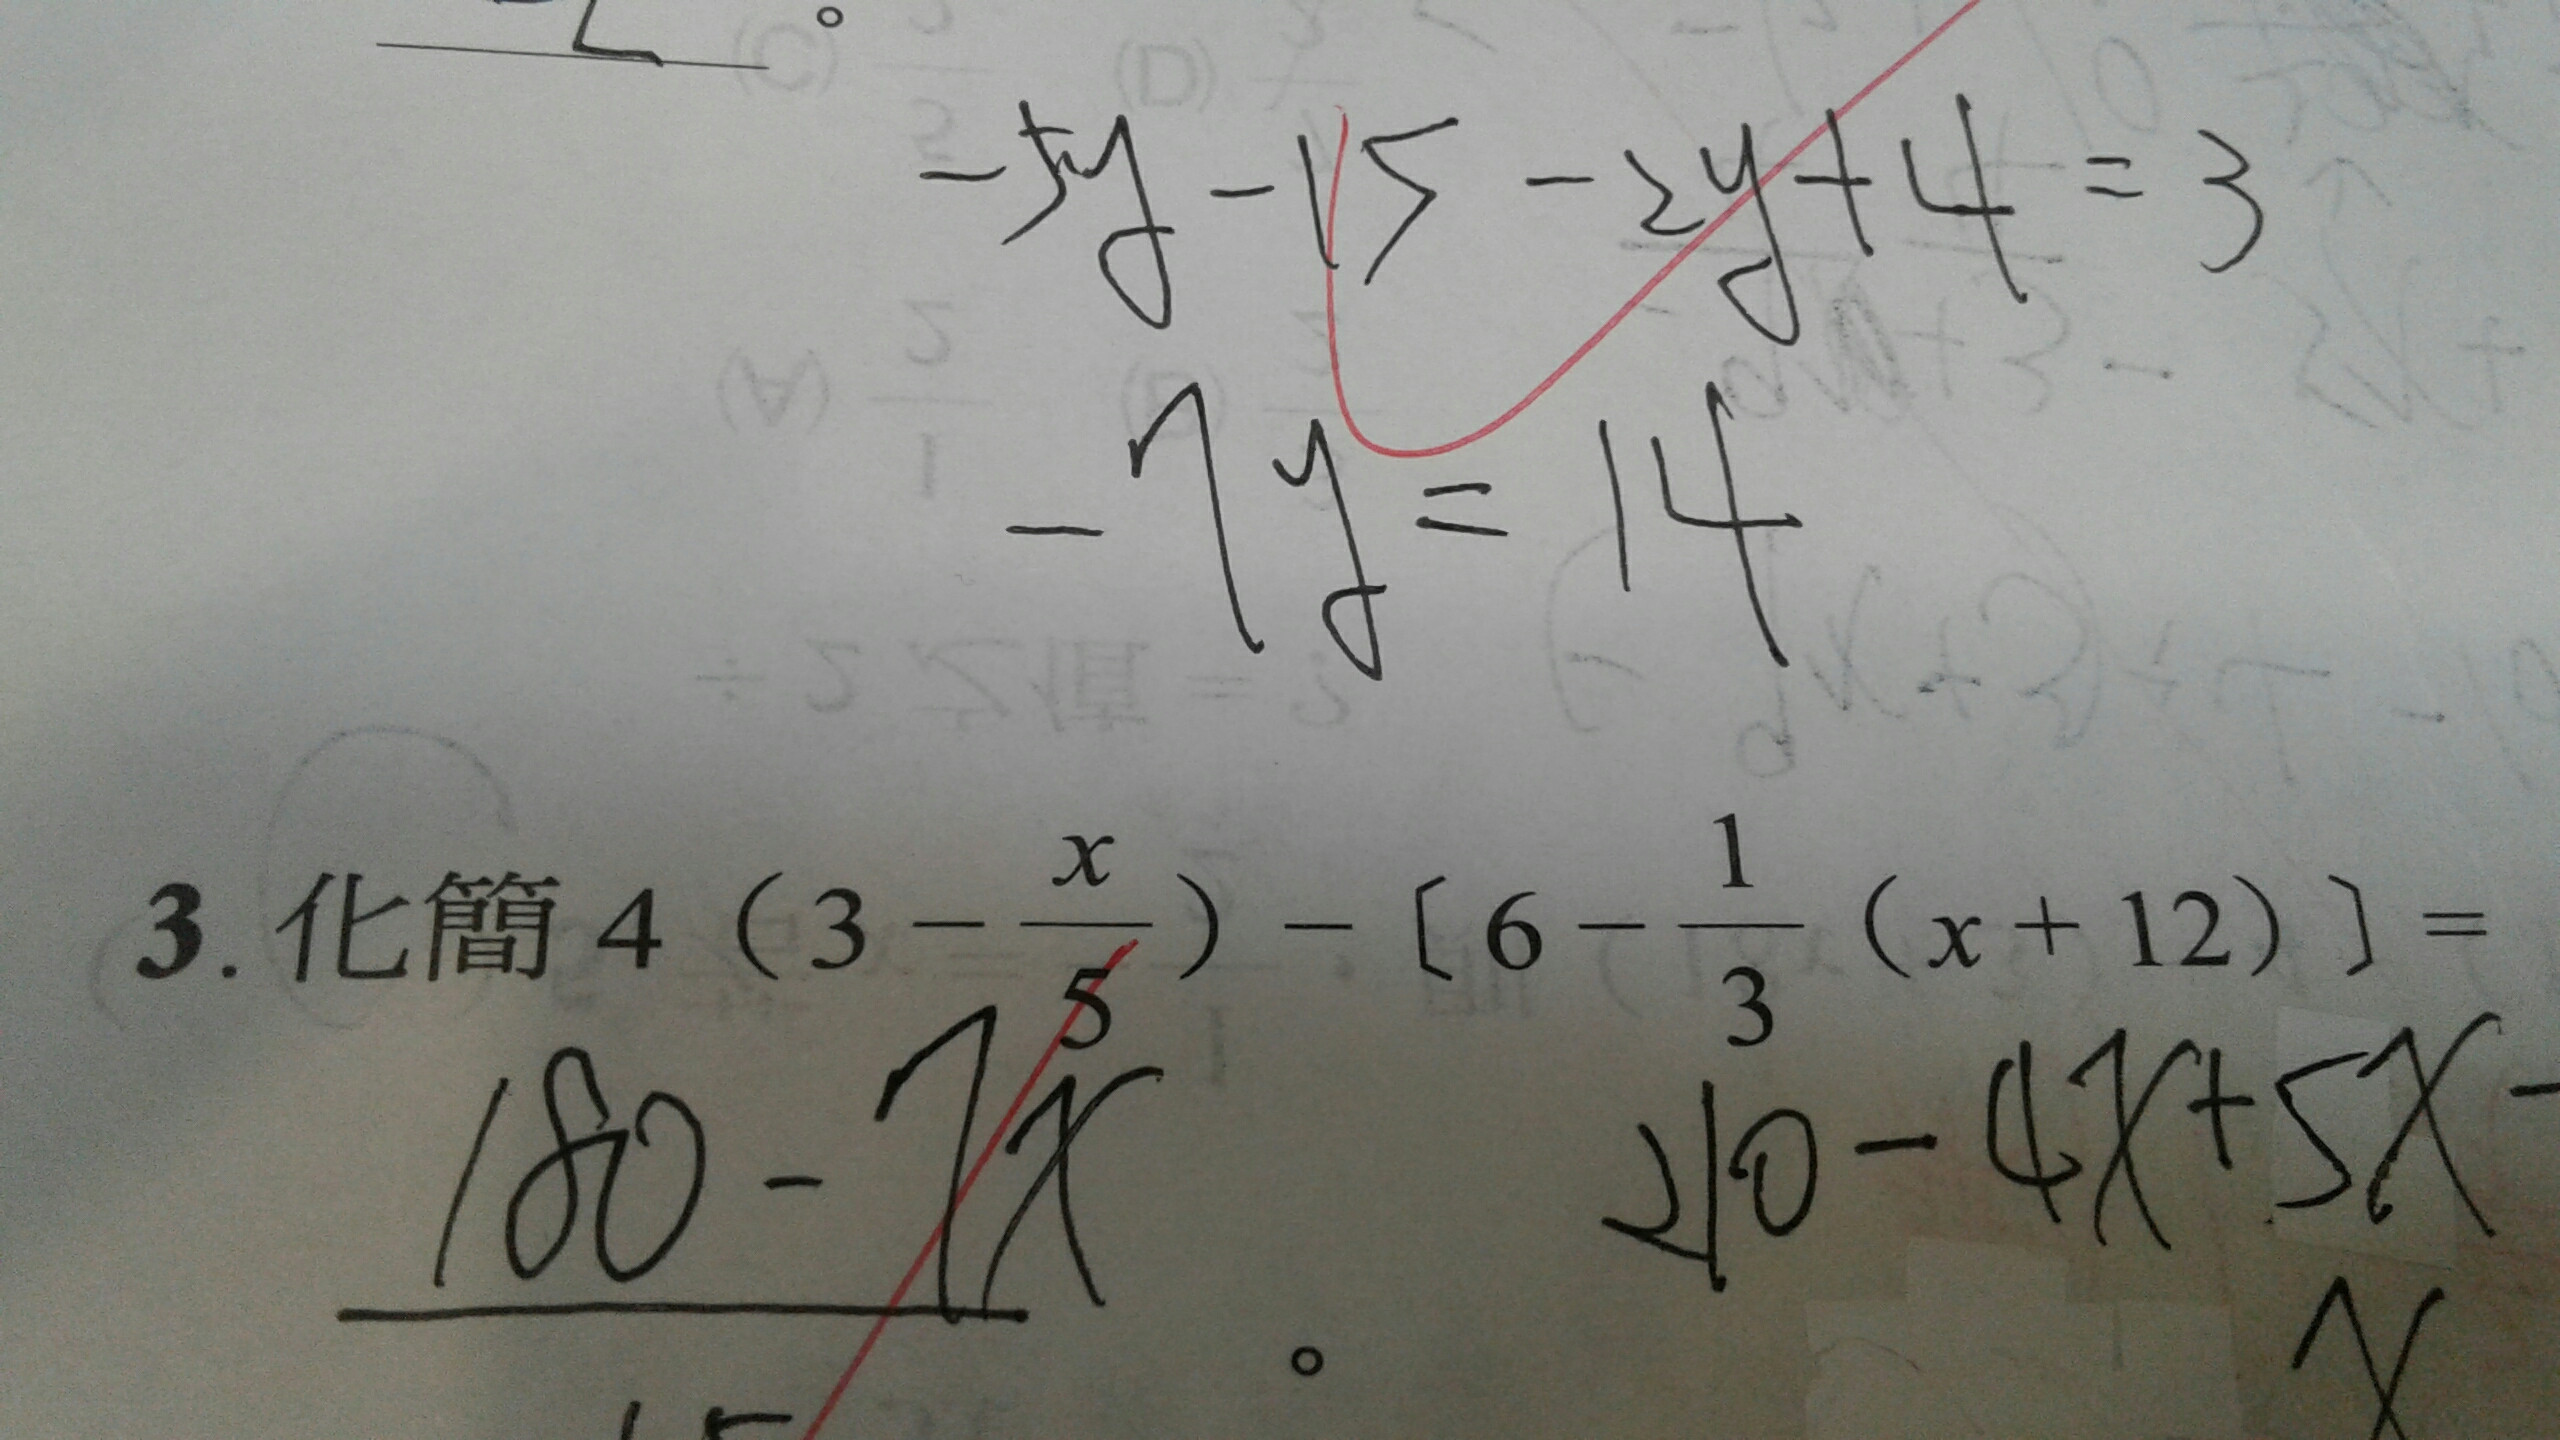 -2 。
-5y-15-2y+4=3
-7y=14
3. 化簡 4（3-x/5）-〔6-1/3（x+12）〕=
180-7x
-4x+5x-
。
x
15